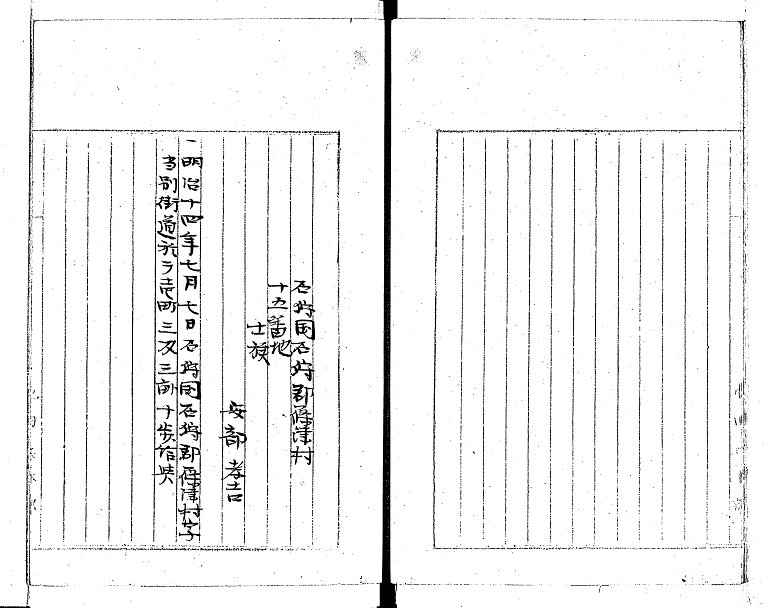 石狩国石狩郡篠津村
十五番地
士族
安部孝吉
一明治十四年七月七日石狩国石狩郡篠津村字
当別街道於テ壱町三反三畝十歩